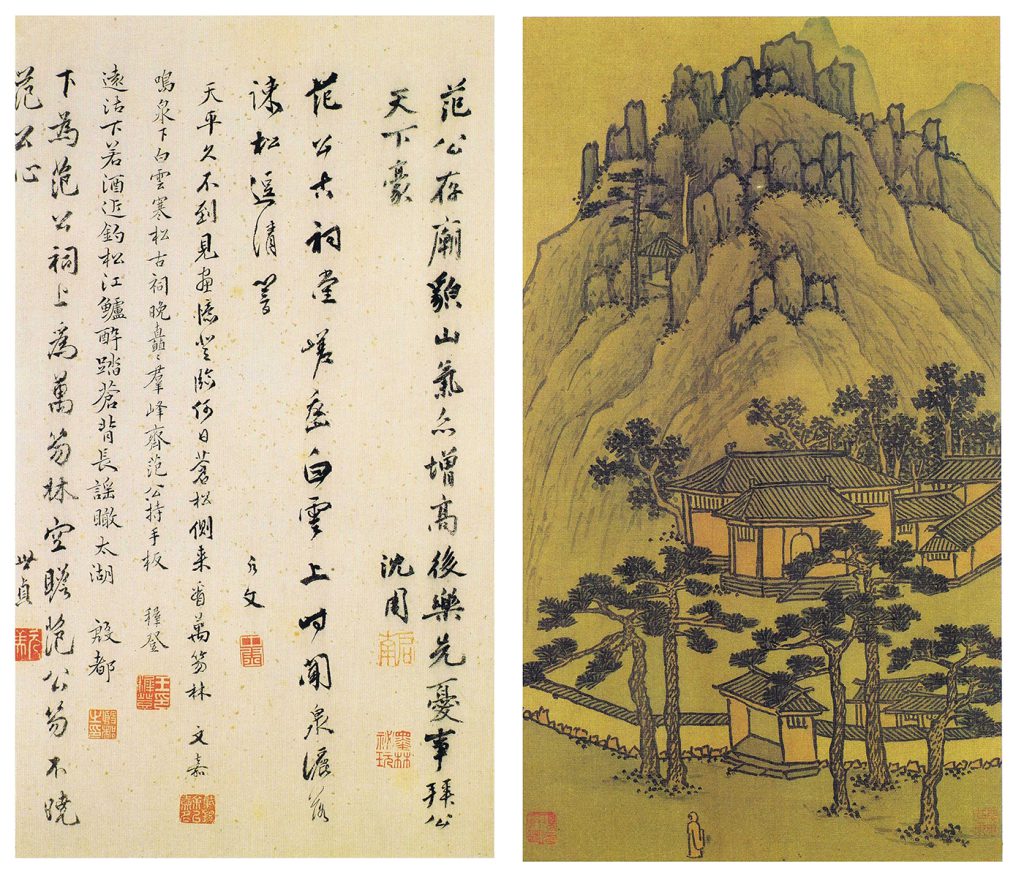 范公存廟貌山氣亦增高後樂先憂事拜公
天下豪 沈周
啟南
墨林秘玩
范公古祠堂白雲上時聞泉落
疎松逗清響
天平久不到見畫憶登臨何日蒼松側来看萬笏林 文嘉
鳴泉下白雲寒松古祠晚矗〻羣峰齊范公持手板 穉登
遠沽下若酒近釣松江鱸醉踏蒼背長謠瞰太湖 殷都
下為范公祠上為萬笏林空瞻范公笏不曉
范公心 世貞